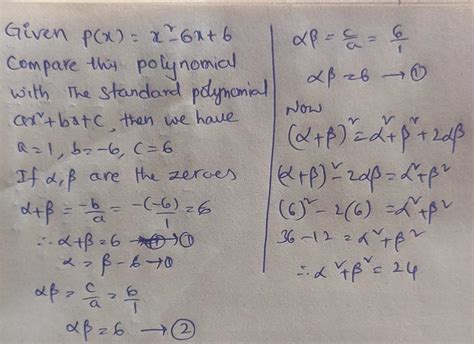 Given p(x) = x²-6x+6
Compare this polynomial
with the standard polynomial
ax²+bx+c, then we have
a=1, b=-6, c=6
If α,β are the zeroes
α+β = -b/a = -(-6)/1 = 6
∴ α+β = 6 → ①
α = β - 6 → ①
αβ = c/a = 6/1
αβ = 6 → ②
αβ = c/a = 6/1
αβ = 6 → ①
Now
(α+β)² = α²+β²+2αβ
(α+β)² - 2αβ = α²+β²
(6)² - 2(6) = α²+β²
36 - 12 = α²+β²
∴ α²+β² = 24